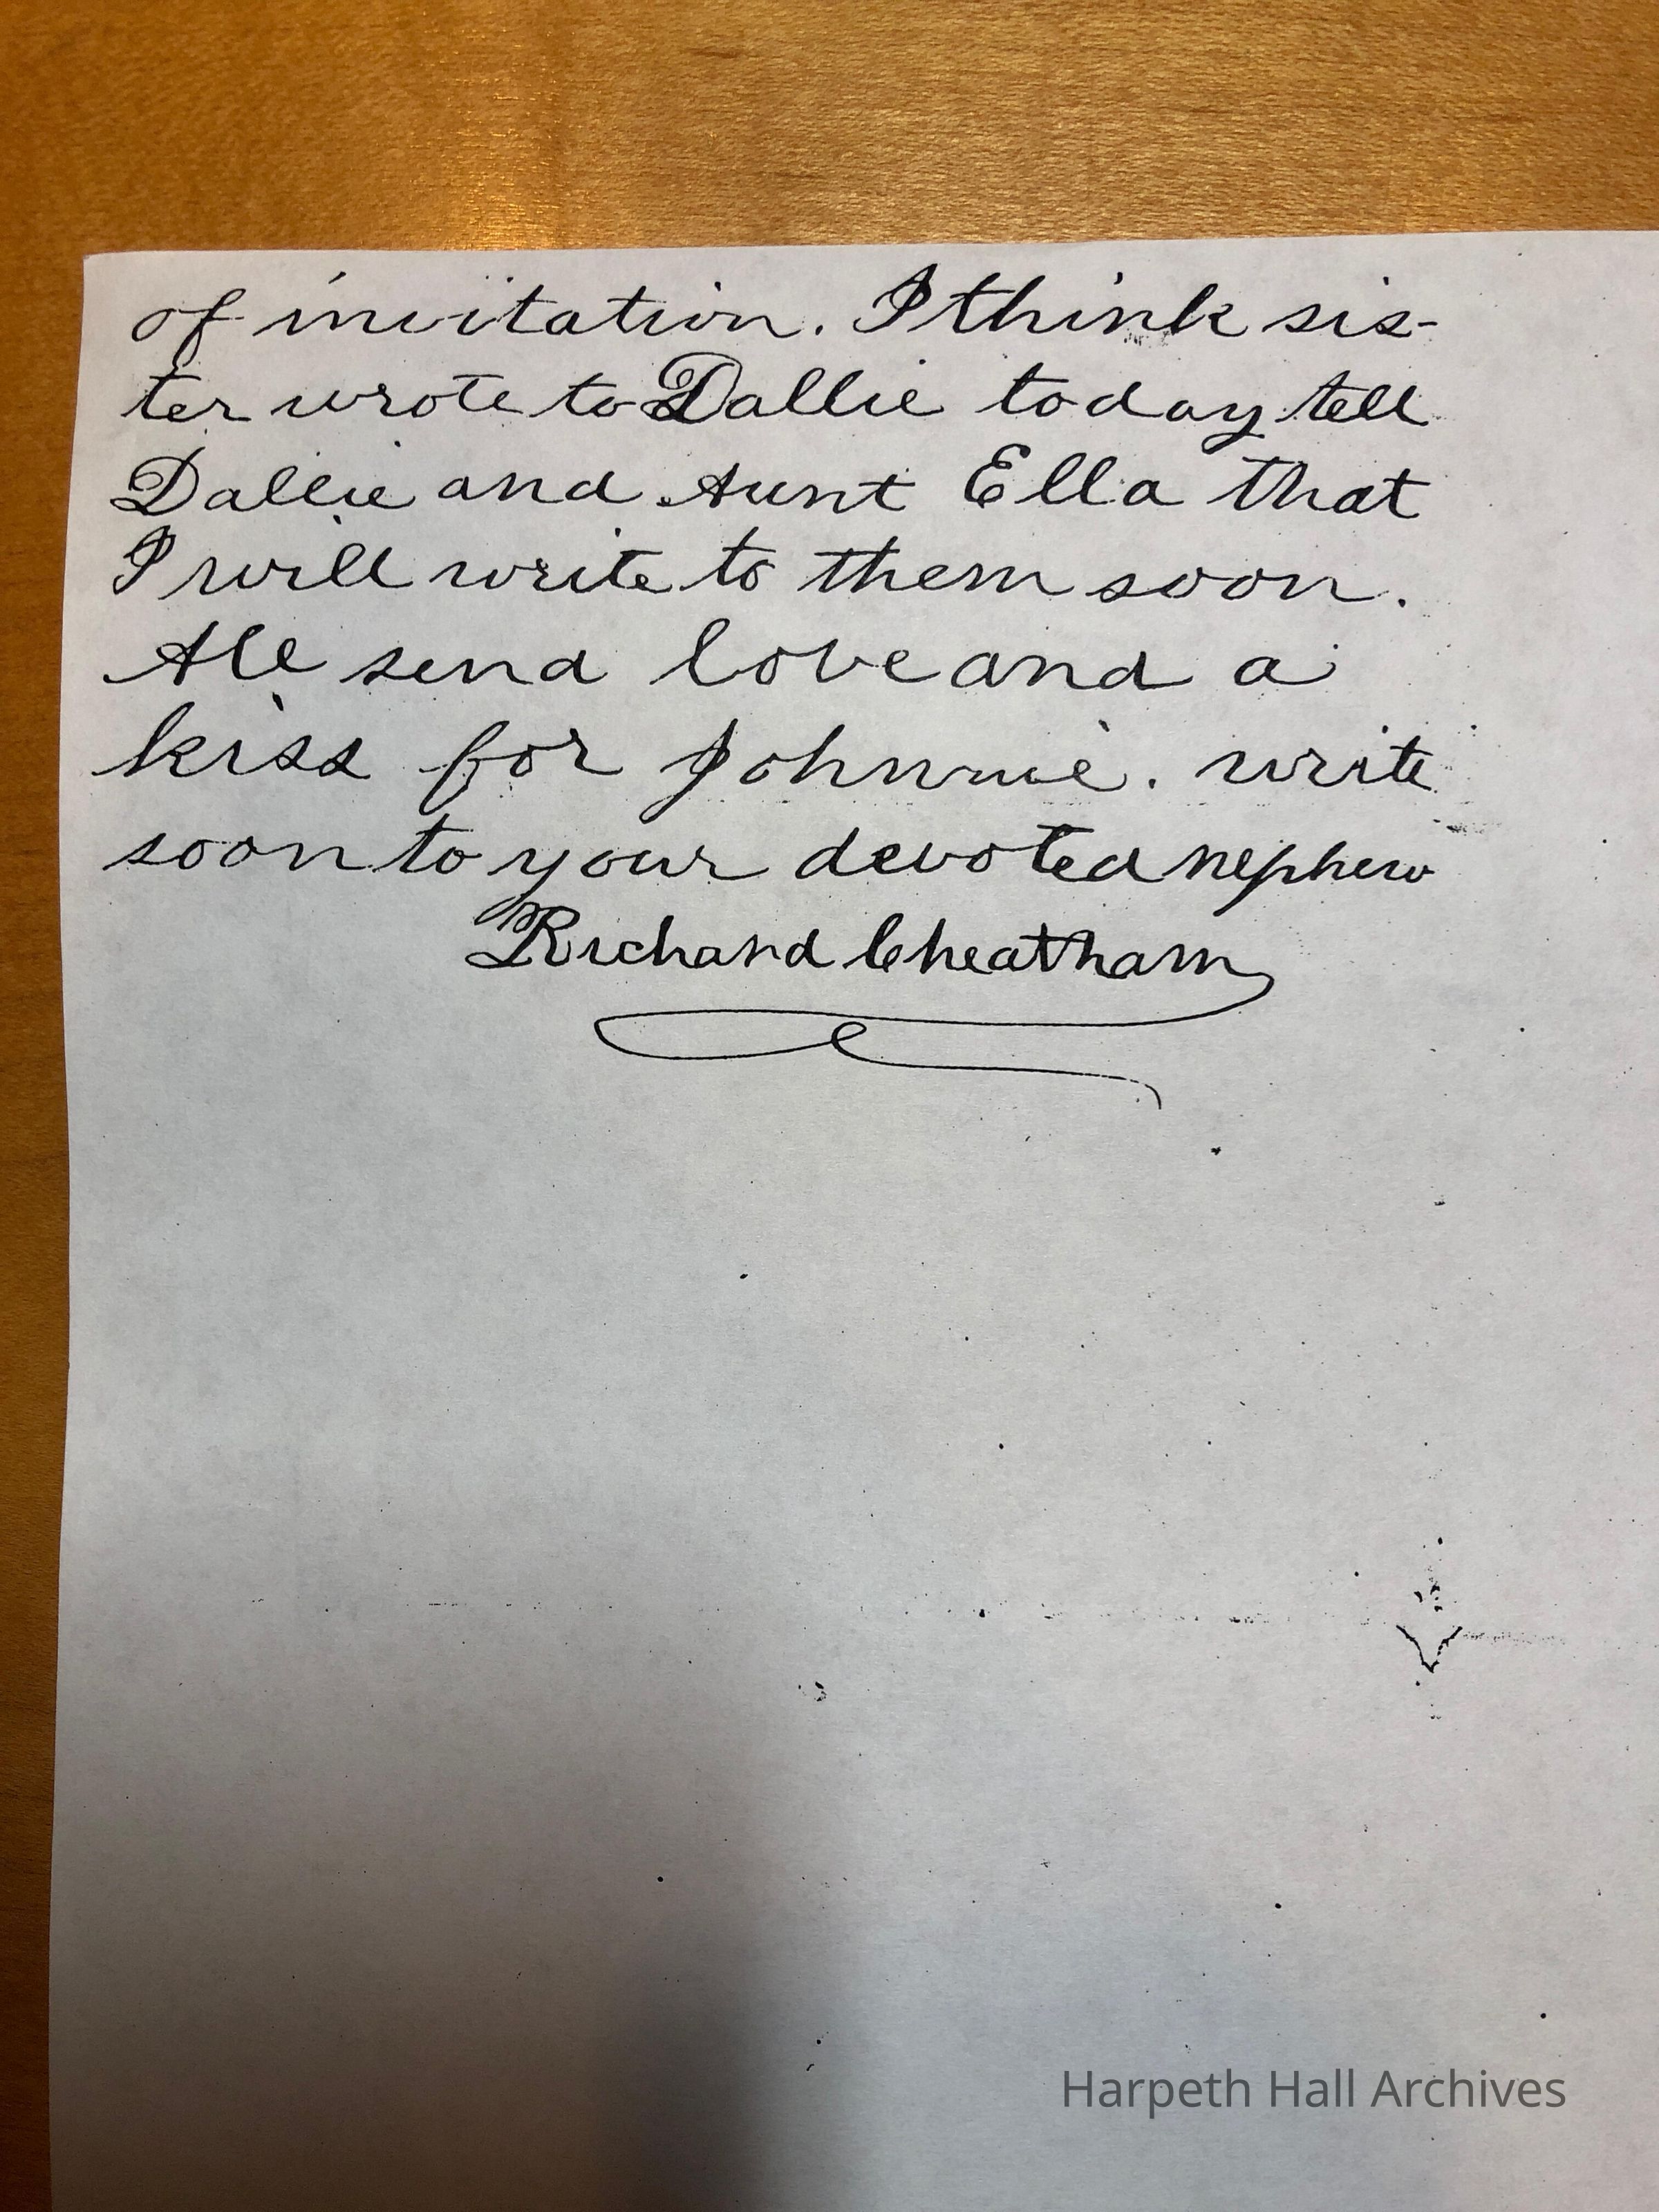 of invitation. I think sis-
ter wrote to Dallie today tell
Dallie and Aunt Ella that
I will write to them soon.
All send love and a
kiss for Johnnie. write
soon to your devoted nephew
Richard Cheatham
Harpeth Hall Archives